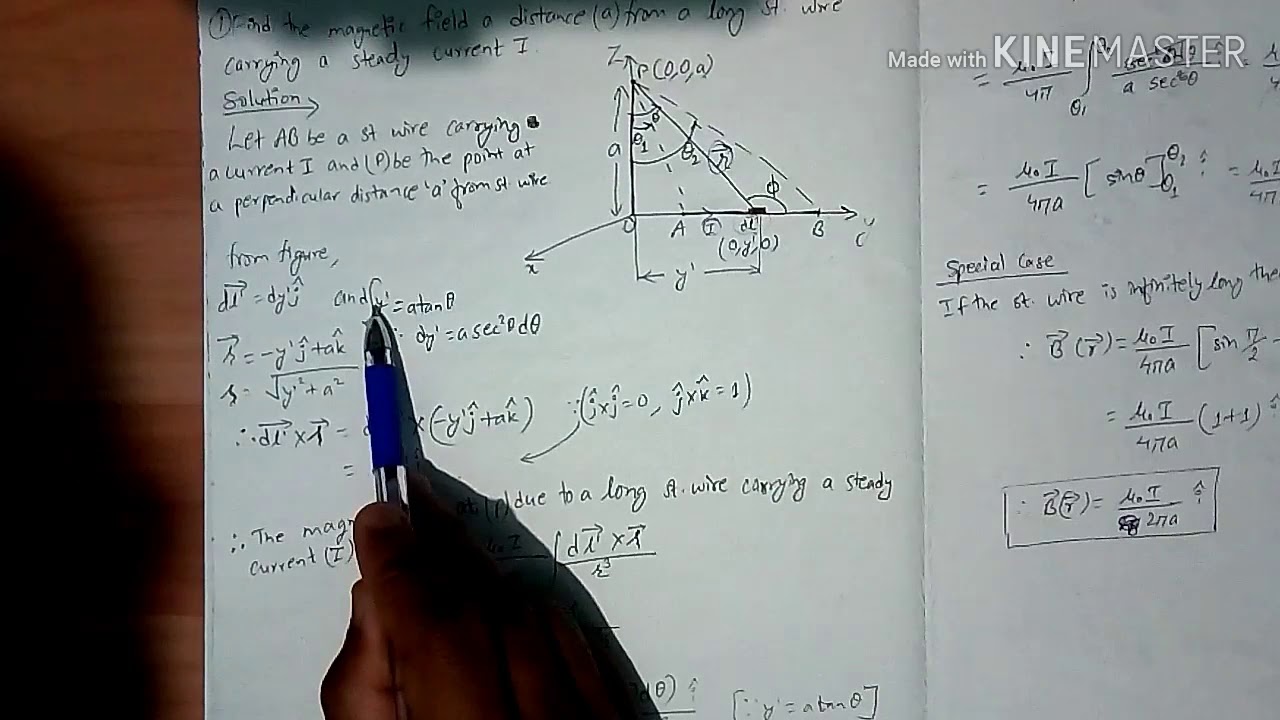 Made with KINEMASTER
① Find the magnetic field a distance (a) from a long st. wire
carrying a steady current I.
Solution
Let AB be a st wire carrying
a current I and (P) be the point at
a perpendicular distance 'a' from st wire
Z
P(0,0,a)
θ
θ₁
a
θ₂
ϕ
O
A
I
dl'
B
(0,y',0)
x
y'
from figure,
dl⃗' = dy'ĵ and y' = a tanθ
∴ dy' = a sec²θ dθ
= -y'ĵ + ak̂
= √y'² + a²
∴ dl⃗' ×
× (-y'ĵ + ak̂) ∵ (ĵ×ĵ = 0, ĵ×k̂ = 1)
=
∴ The
(P) due to a long st. wire carrying a steady
current (I)
μ₀ I ∫ dl⃗' ×
dθ) î [∵ y' = a tanθ]
= μ₀ I / 4π ∫ θ₁ / a sec²θ
= μ₀ I / 4πa [sinθ]θ₁^θ₂ î = μ₀ I
Special Case
If the st. wire is infinitely long
∴ B⃗(r⃗) = μ₀ I / 4πa [sin π/2 -
= μ₀ I / 4πa (1+1)
∴ B⃗(r⃗) = μ₀ I / 2πa î